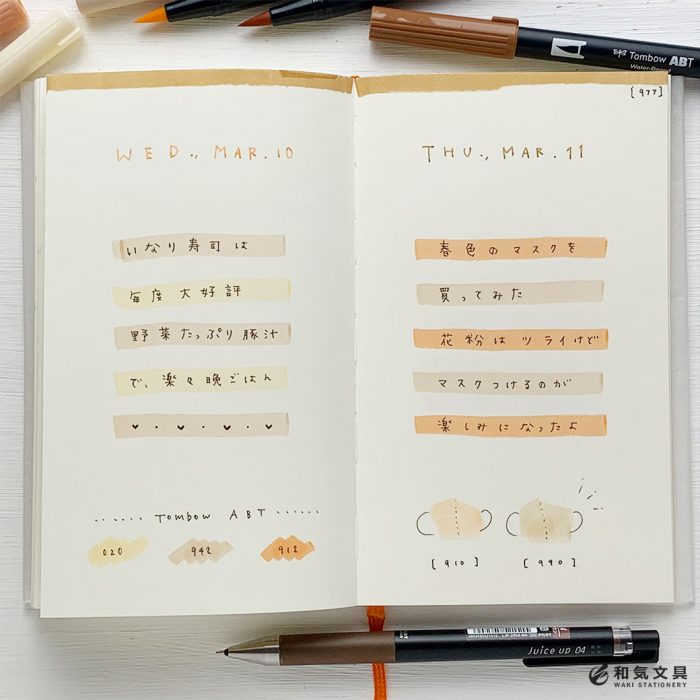 Tombow ABT
Water-Based
[977]
WED., MAR. 10
いなり寿司は
毎度大好評
野菜たっぷり豚汁
で、楽々晩ごはん
♥・♥・♥・♥
Tombow ABT
020
942
912
THU., MAR. 11
春色のマスクを
買ってみた
花粉はツライけど
マスクつけるのが
楽しみになったよ
[910]
[990]
Juice up 04
和気文具
WAKI STATIONERY